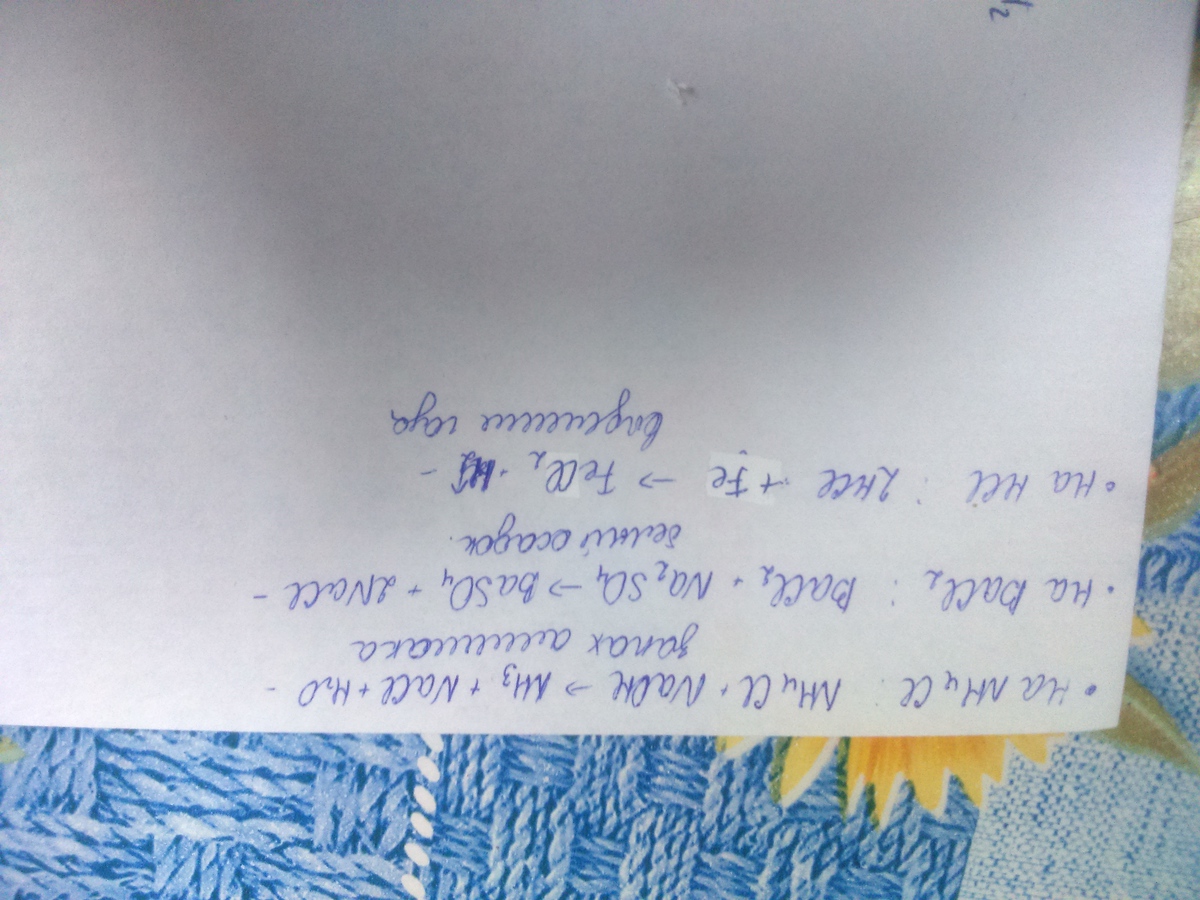 • на NH₄Cl : NH₄Cl + NaOH → NH₃ + NaCl + H₂O -
запах аммиака
• на BaCl₂ : BaCl₂ + Na₂SO₄ → BaSO₄ + 2NaCl -
белый осадок.
• на HCl : 2HCl + Fe → FeCl₂ + H₂ -
выделение газа